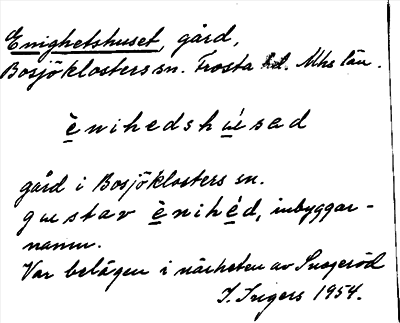 Enighetshuset, gård,
Bosjöklosters sn. Frosta hd. Mhs län.
ènihedshúsad
gård i Bosjöklosters sn.
gustav ènihéd, inbyggar-
namn.
Var belägen i närheten av Snogeröd
I. Ingers 1954.